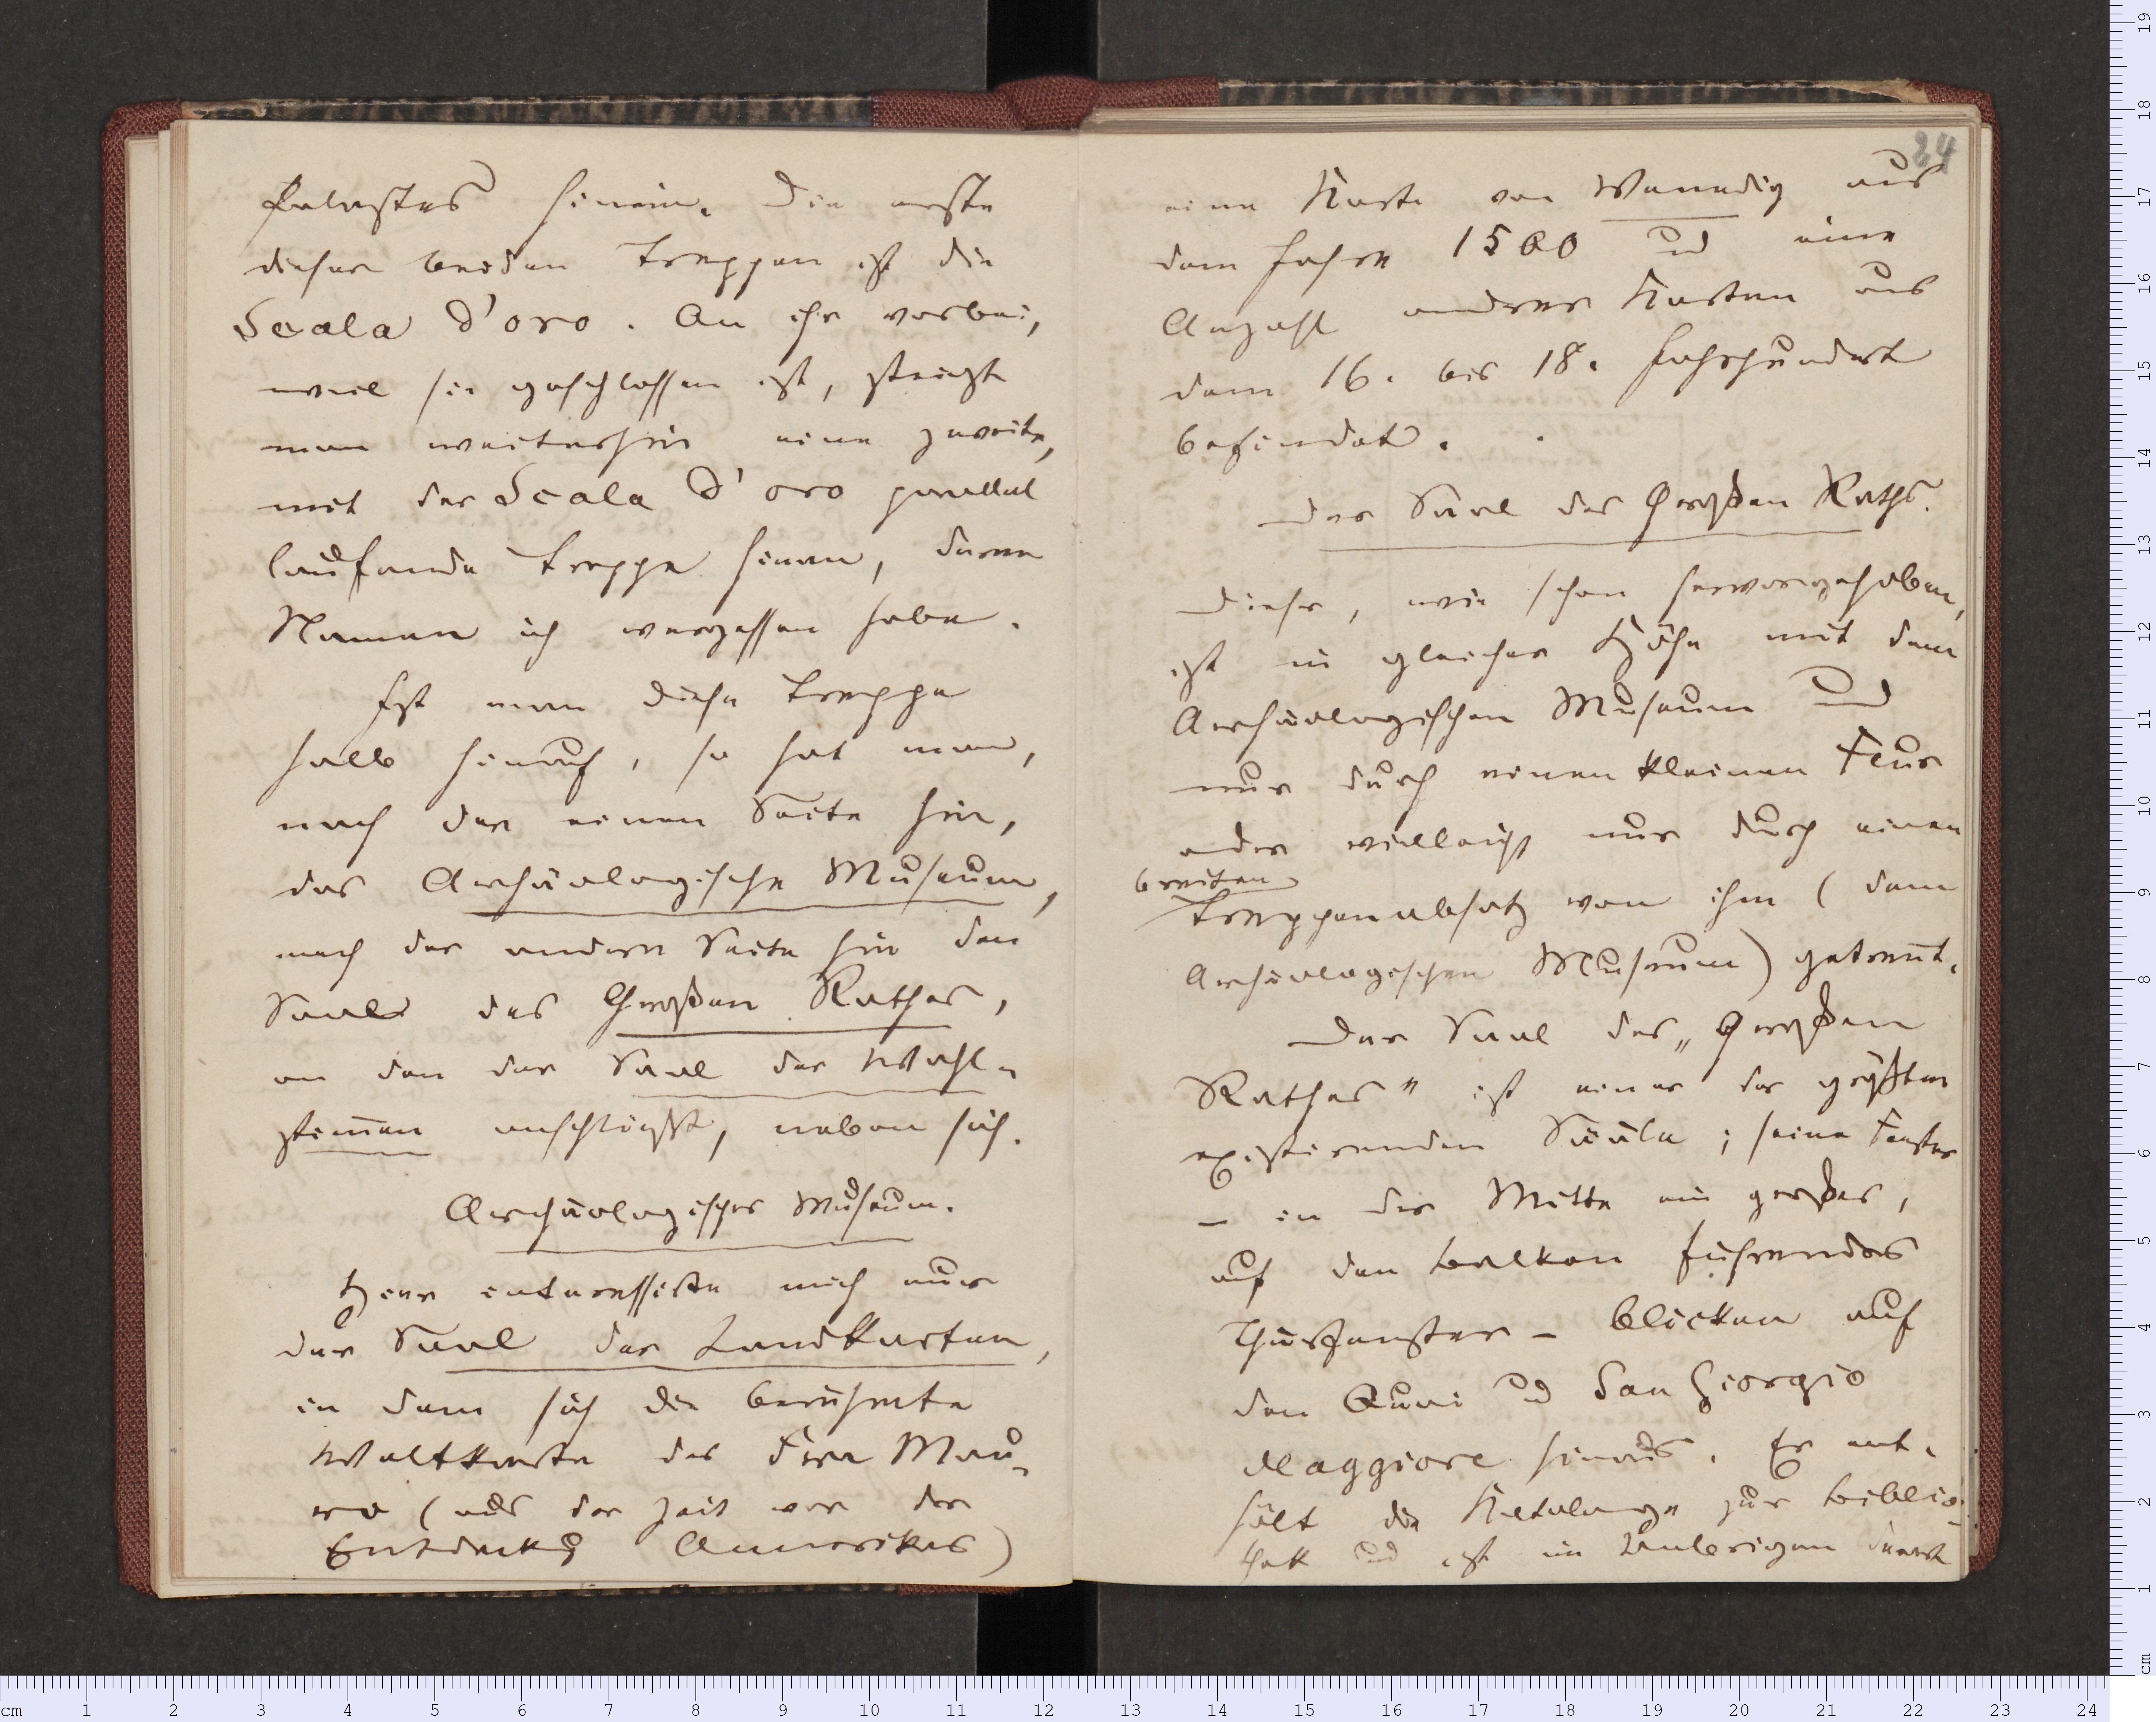 Palastes hinein. Die erste
dieser beiden Treppen ist die
Scala d'oro. An ihr vorbei,
weil sie geschlossen ist, steigt
man weiterhin eine zweite,
mit der Scala d'oro parallel
laufende Treppe hinan, deren
Namen ich vergessen habe.
Ist man diese Treppe
halb hinauf, so hat man,
nach der einen Seite hin,
das Archäologische Museum,
nach der andern Seite hin den
Saal des Großen Rathes,
an den der Saal der Wahl-
stimmen anschließt, neben sich.
Archäologisches Museum.
Hier interessirte mich nur
der Saal der Landkarten,
in dem sich die berühmte
Weltkarte des Fra Mau-
ro (aus der Zeit vor der
Entdeckg Amerikas)
84
eine Karte von Venedig aus
dem Jahre 1500 und eine
Anzahl andrer Karten aus
dem 16. bis 18. Jahrhundert
befindet.
Der Saal des Großen Raths.
Dieser, wie schon hervorgehoben,
ist in gleicher Höhe mit dem
Archäologischen Museum und
nur durch einen kleinen Flur
oder vielleicht nur durch einen
breiten
Treppenabsatz von ihm (dem
Archäologischen Museum) getrennt.
Der Saal des „Großen
Rathes" ist einer der größten
existirenden Sääle; seine Fenster
– in der Mitte ein großes,
auf den Balkon führendes
Thürfenster – blicken auf
den Quai und San Giorgio
Maggiore hinaus. Er ent-
hält die Kataloge zur Biblio-
thek und ist im Uebrigen